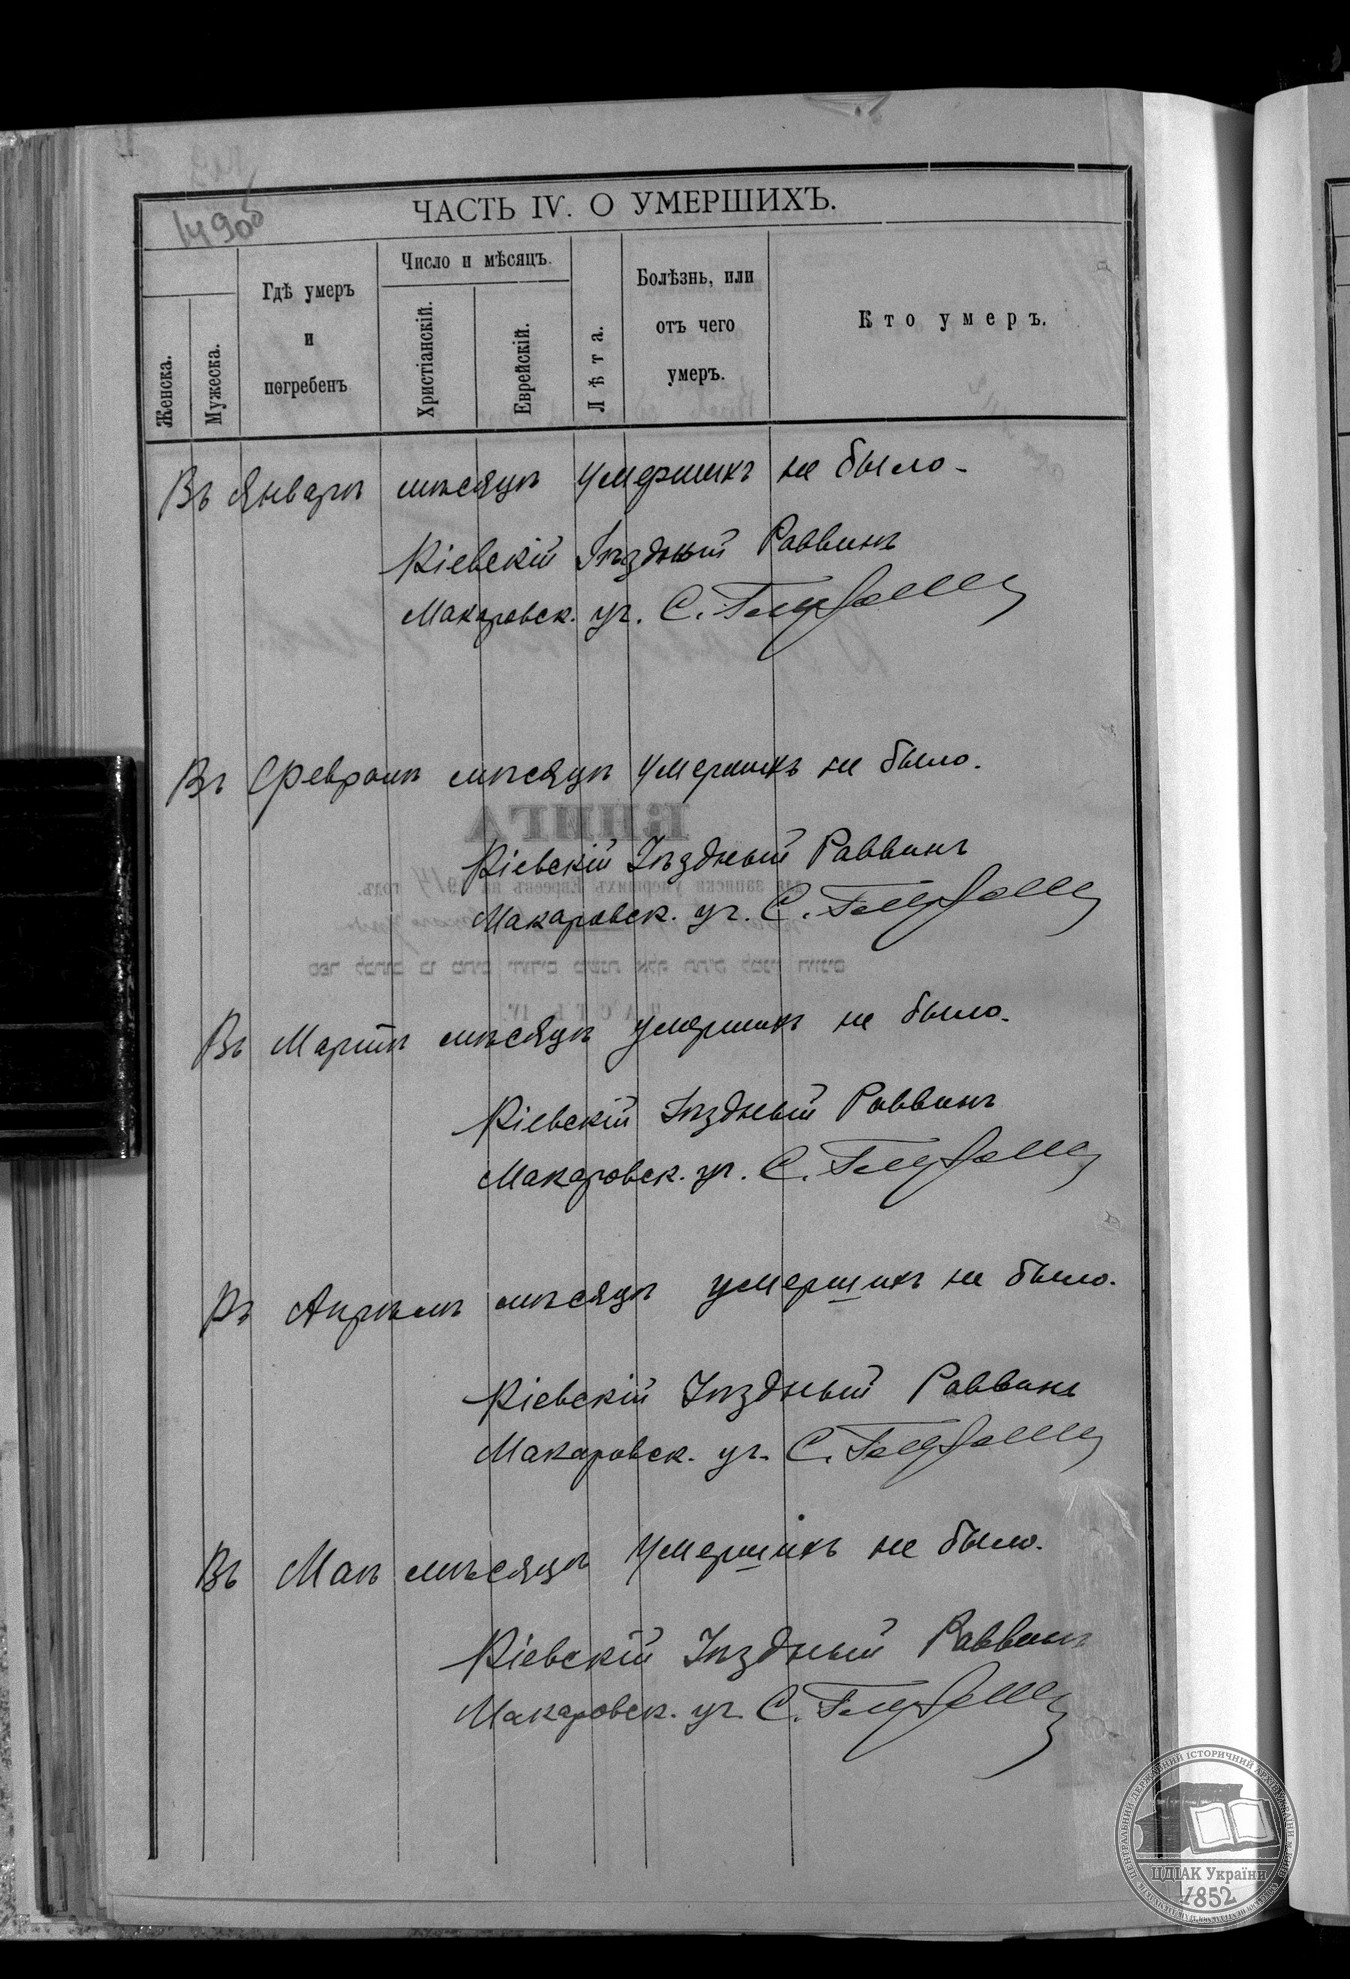 149об
ЧАСТЬ IV. О УМЕРШИХЪ.
Женска.
Мужеска.
Гдѣ умеръ
и
погребенъ
Число и мѣсяцъ.
Христіанскій.
Еврейскій.
Лѣта.
Болѣзнь, или
отъ чего
умеръ.
Кто умеръ.
Въ Январѣ мѣсяцѣ умершихъ не было.
Кіевскій Уѣздный Раввинъ
Макаровск. уч. С.
Въ Февралѣ мѣсяцѣ умершихъ не было.
Кіевскій Уѣздный Раввинъ
Макаровск. уч. С.
Въ Мартѣ мѣсяцѣ умершихъ не было.
Кіевскій Уѣздный Раввинъ
Макаровск. уч. С.
Въ Апрѣлѣ мѣсяцѣ умершихъ не было.
Кіевскій Уѣздный Раввинъ
Макаровск. уч. С.
Въ Маѣ мѣсяцѣ умершихъ не было.
Кіевскій Уѣздный Раввинъ
Макаровск. уч. С.
ЦДІАК України
1852